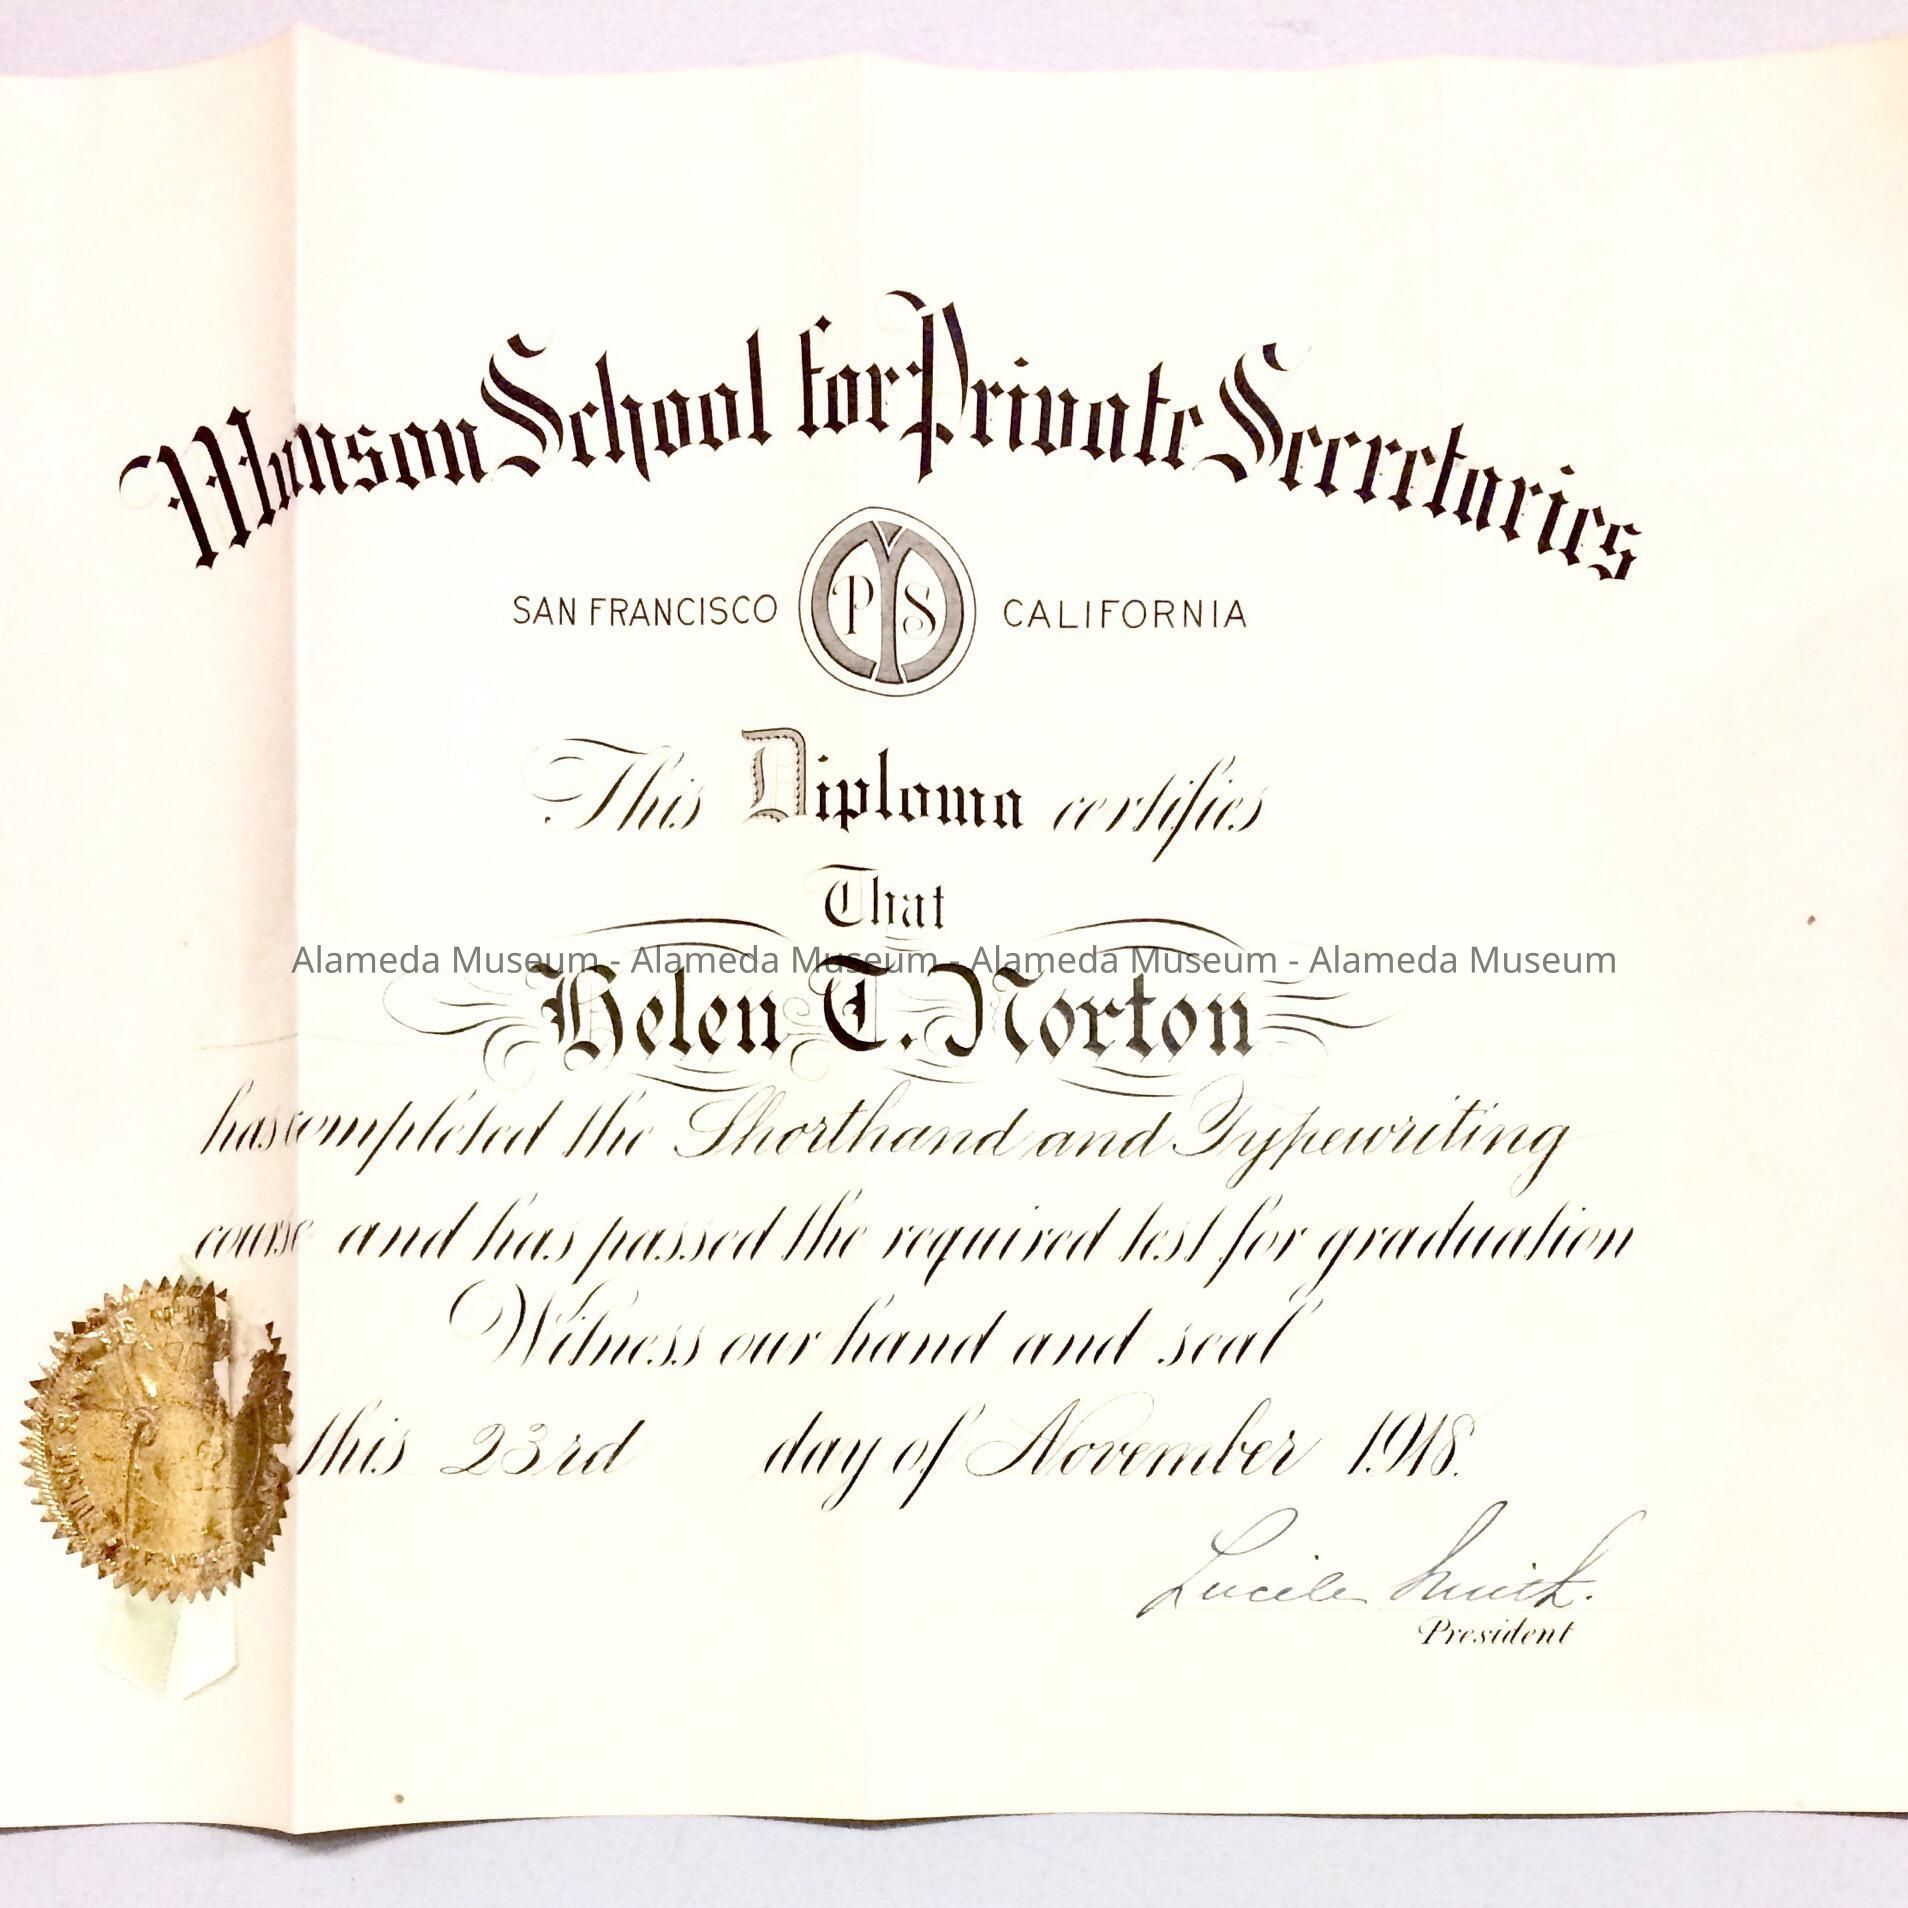 Munson School for Private Secretaries
SAN FRANCISCO MPS CALIFORNIA
This Diploma certifies
That
Alameda Museum - Alameda Museum - Alameda Museum - Alameda Museum
Helen T. Norton
has completed the Shorthand and Typewriting
course and has passed the required test for graduation
Witness our hand and seal
this 23rd day of November 1918.
Lucile Smith.
President